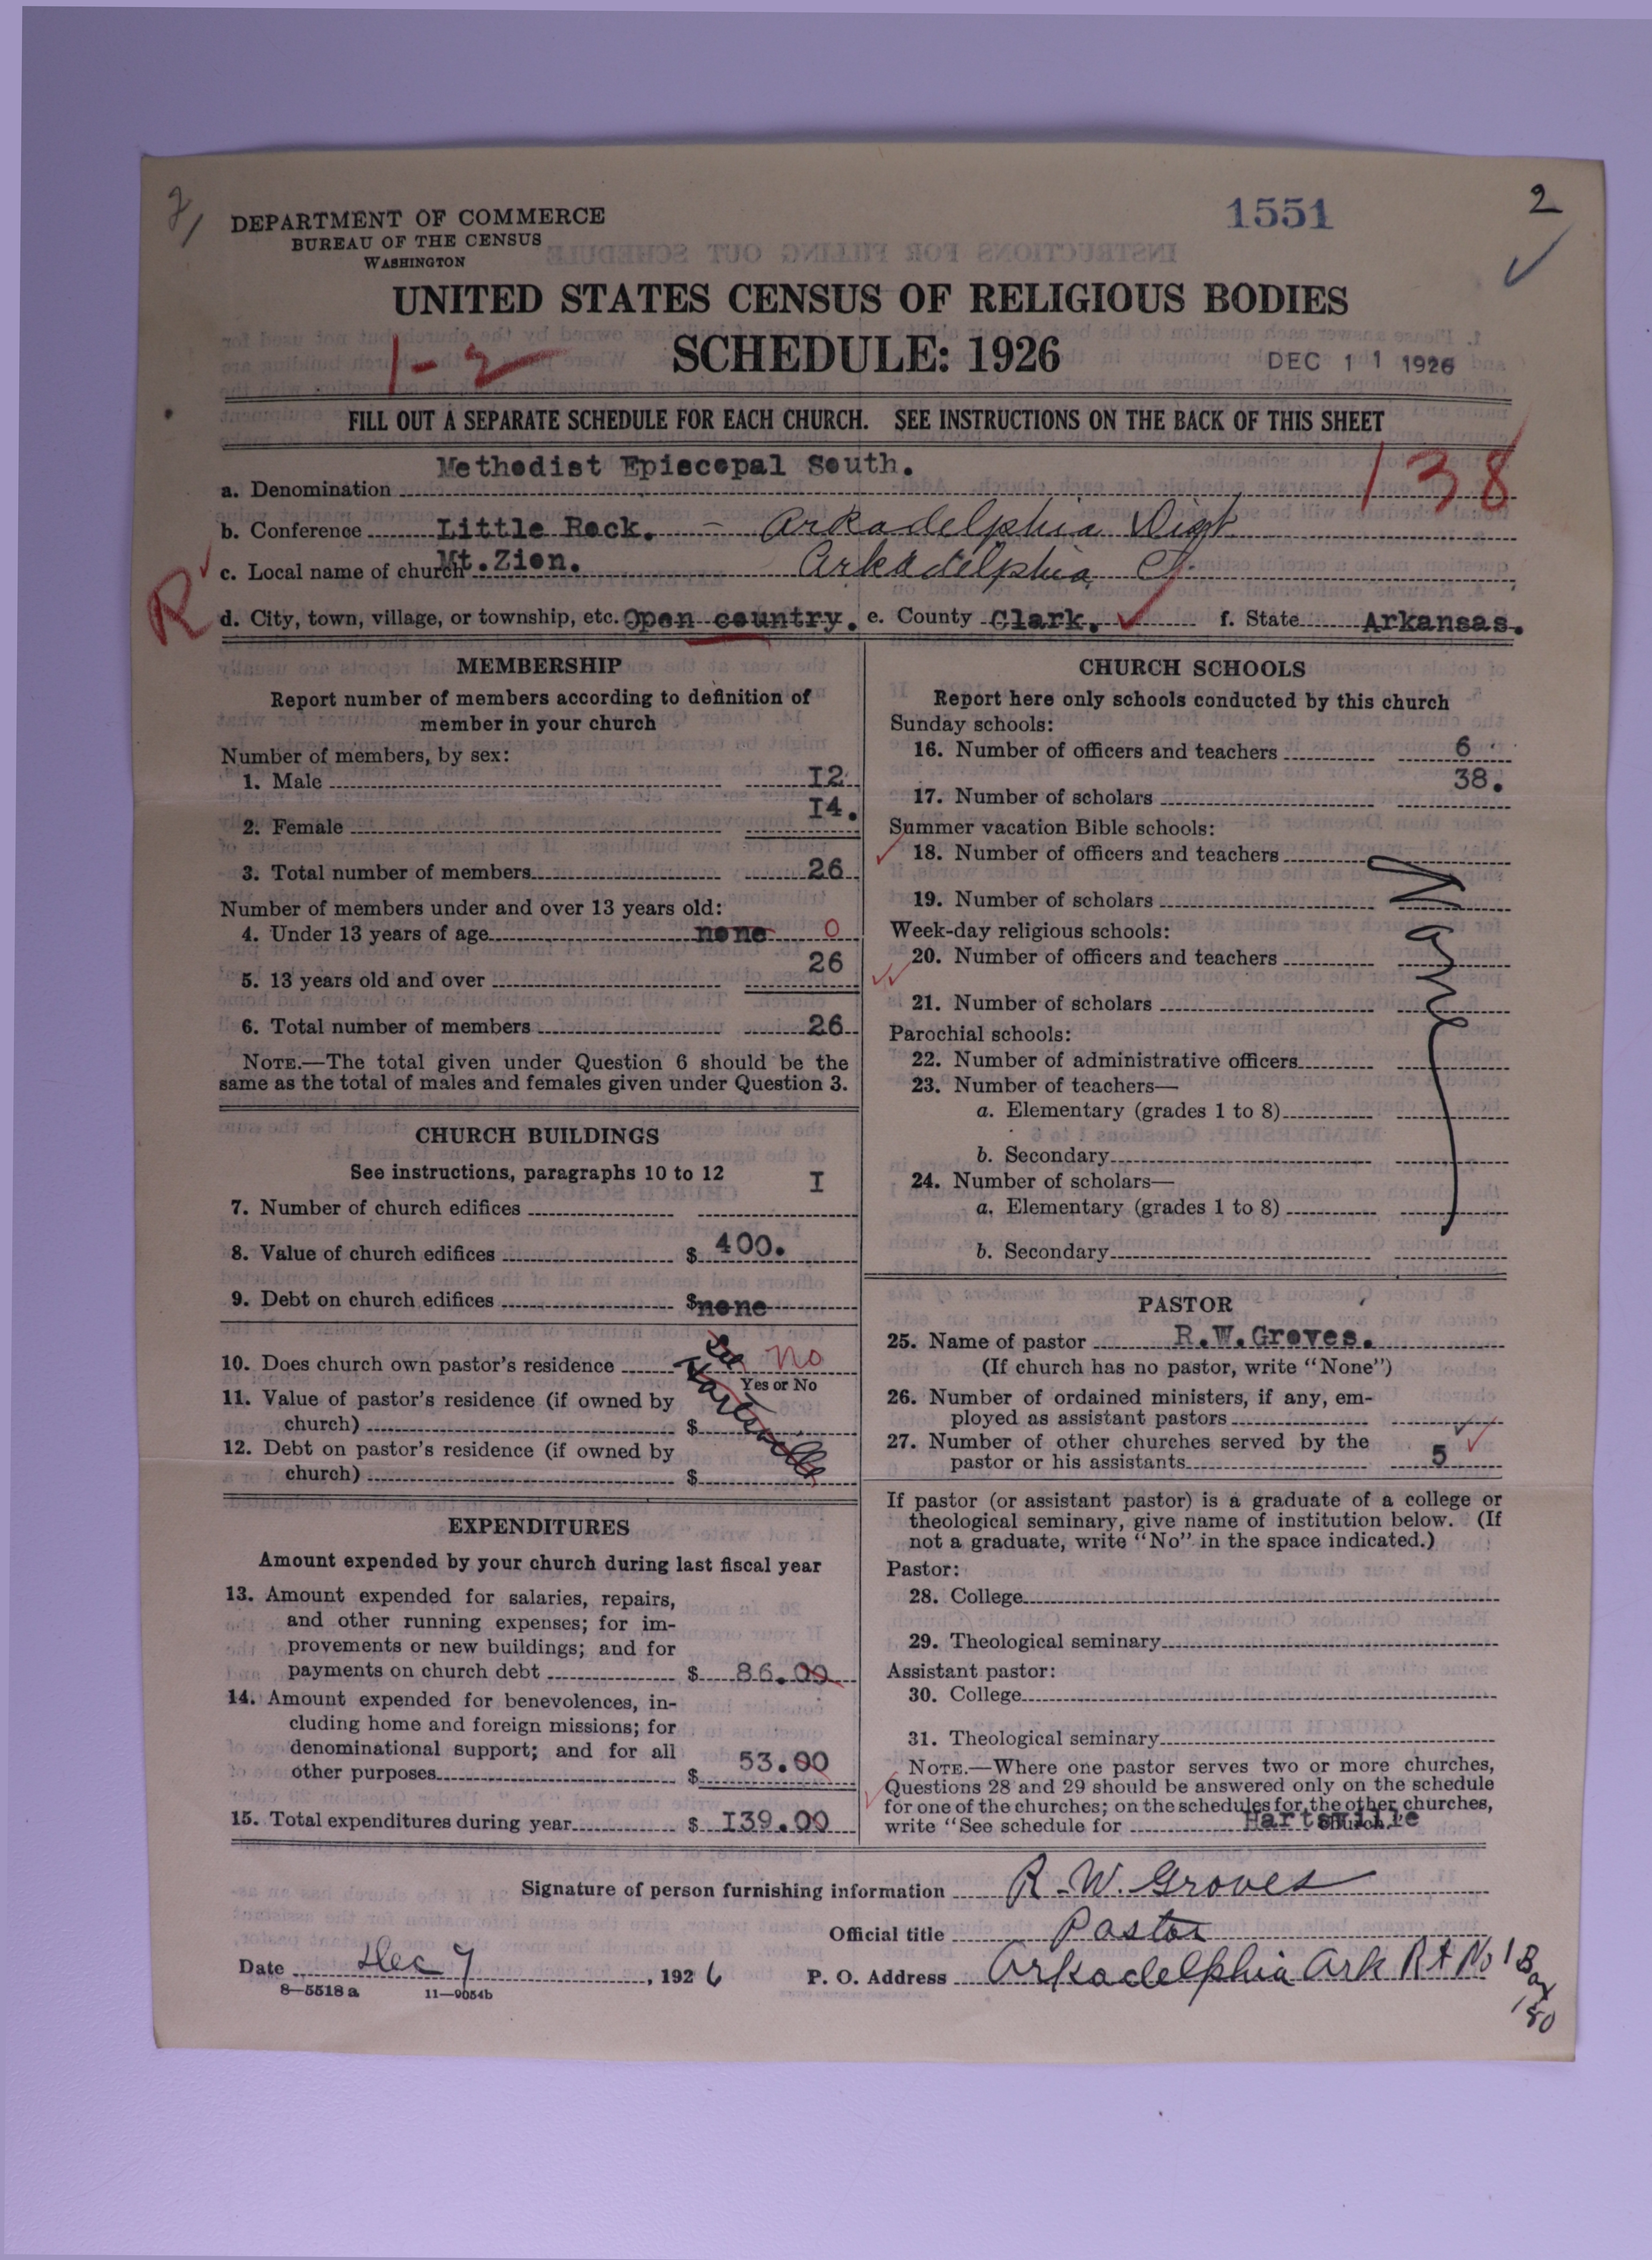 DEPARTMENT OF COMMERCE
BUREAU OF THE CENSUS
WASHINGTON
1551
2
UNITED STATES CENSUS OF RELIGIOUS BODIES
1-2
SCHEDULE: 1926
DEC 11 1926
FILL OUT A SEPARATE SCHEDULE FOR EACH CHURCH. SEE INSTRUCTIONS ON THE BACK OF THIS SHEET
138
a. Denomination Methodist Episcopal South.
b. Conference Little Rock. - Arkadelphia Dist
c. Local name of church Mt. Zion. Arkadelphia Ct.
R
d. City, town, village, or township, etc. Open country. e. County Clark. f. State Arkansas.
MEMBERSHIP
Report number of members according to definition of
member in your church
Number of members, by sex:
1. Male 12
2. Female 14.
3. Total number of members 26
Number of members under and over 13 years old:
4. Under 13 years of age none 0
5. 13 years old and over 26
6. Total number of members 26
NOTE.—The total given under Question 6 should be the
same as the total of males and females given under Question 3.
CHURCH BUILDINGS
See instructions, paragraphs 10 to 12
7. Number of church edifices I
8. Value of church edifices $ 400.
9. Debt on church edifices $ none
10. Does church own pastor's residence See Hartsville No
Yes or No
11. Value of pastor's residence (if owned by
church) $
12. Debt on pastor's residence (if owned by
church) $
EXPENDITURES
Amount expended by your church during last fiscal year
13. Amount expended for salaries, repairs,
and other running expenses; for im-
provements or new buildings; and for
payments on church debt $ 86.00
14. Amount expended for benevolences, in-
cluding home and foreign missions; for
denominational support; and for all
other purposes $ 53.00
15. Total expenditures during year $ 139.00
CHURCH SCHOOLS
Report here only schools conducted by this church
Sunday schools:
16. Number of officers and teachers 6
17. Number of scholars 38.
Summer vacation Bible schools:
18. Number of officers and teachers
19. Number of scholars
None
Week-day religious schools:
20. Number of officers and teachers
21. Number of scholars
Parochial schools:
22. Number of administrative officers
23. Number of teachers—
a. Elementary (grades 1 to 8)
b. Secondary
24. Number of scholars—
a. Elementary (grades 1 to 8)
b. Secondary
PASTOR
25. Name of pastor R.W.Groves.
(If church has no pastor, write "None")
26. Number of ordained ministers, if any, em-
ployed as assistant pastors
27. Number of other churches served by the
pastor or his assistants 5
If pastor (or assistant pastor) is a graduate of a college or
theological seminary, give name of institution below. (If
not a graduate, write "No" in the space indicated.)
Pastor:
28. College
29. Theological seminary
Assistant pastor:
30. College
31. Theological seminary
NOTE.—Where one pastor serves two or more churches,
Questions 28 and 29 should be answered only on the schedule
for one of the churches; on the schedules for the other churches,
write "See schedule for Hartsville church."
Signature of person furnishing information R. W. Groves
Official title Pastor
Date Dec 7, 1926 P. O. Address Arkadelphia Ark Rt No 1 Box 180
8—5518 a 11—9054b